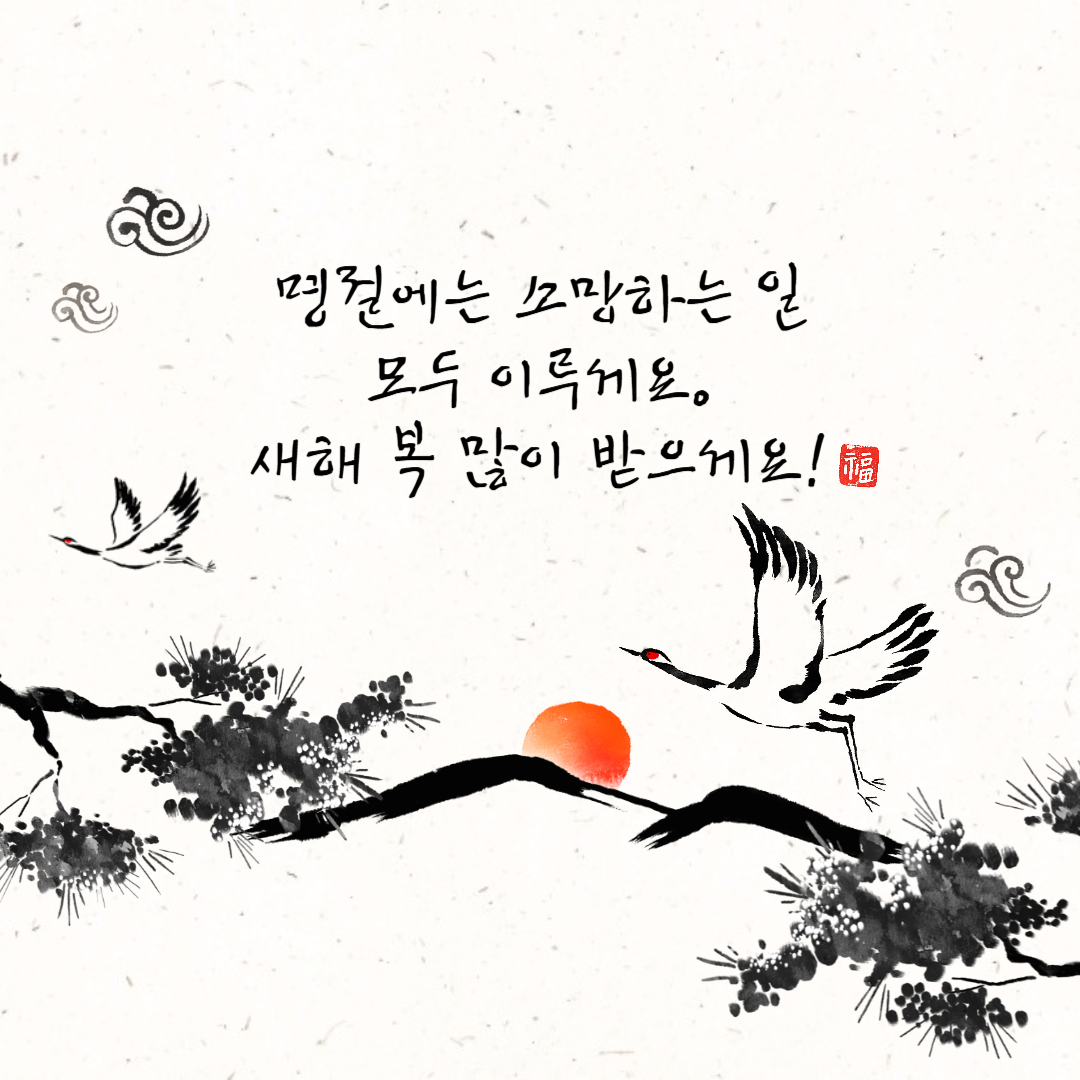 명절에는 소망하는 일
모두 이루세요.
새해 복 많이 받으세요! 福